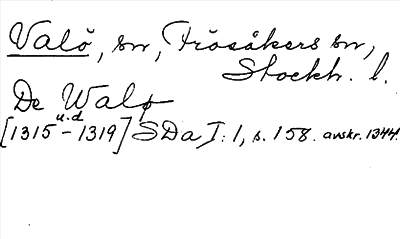 Valö, sn, Frösåkers sn,
Stockh. l.
De Walø
[1315 u.d - 1319] SDa I:1, s. 158. avskr. 1344.